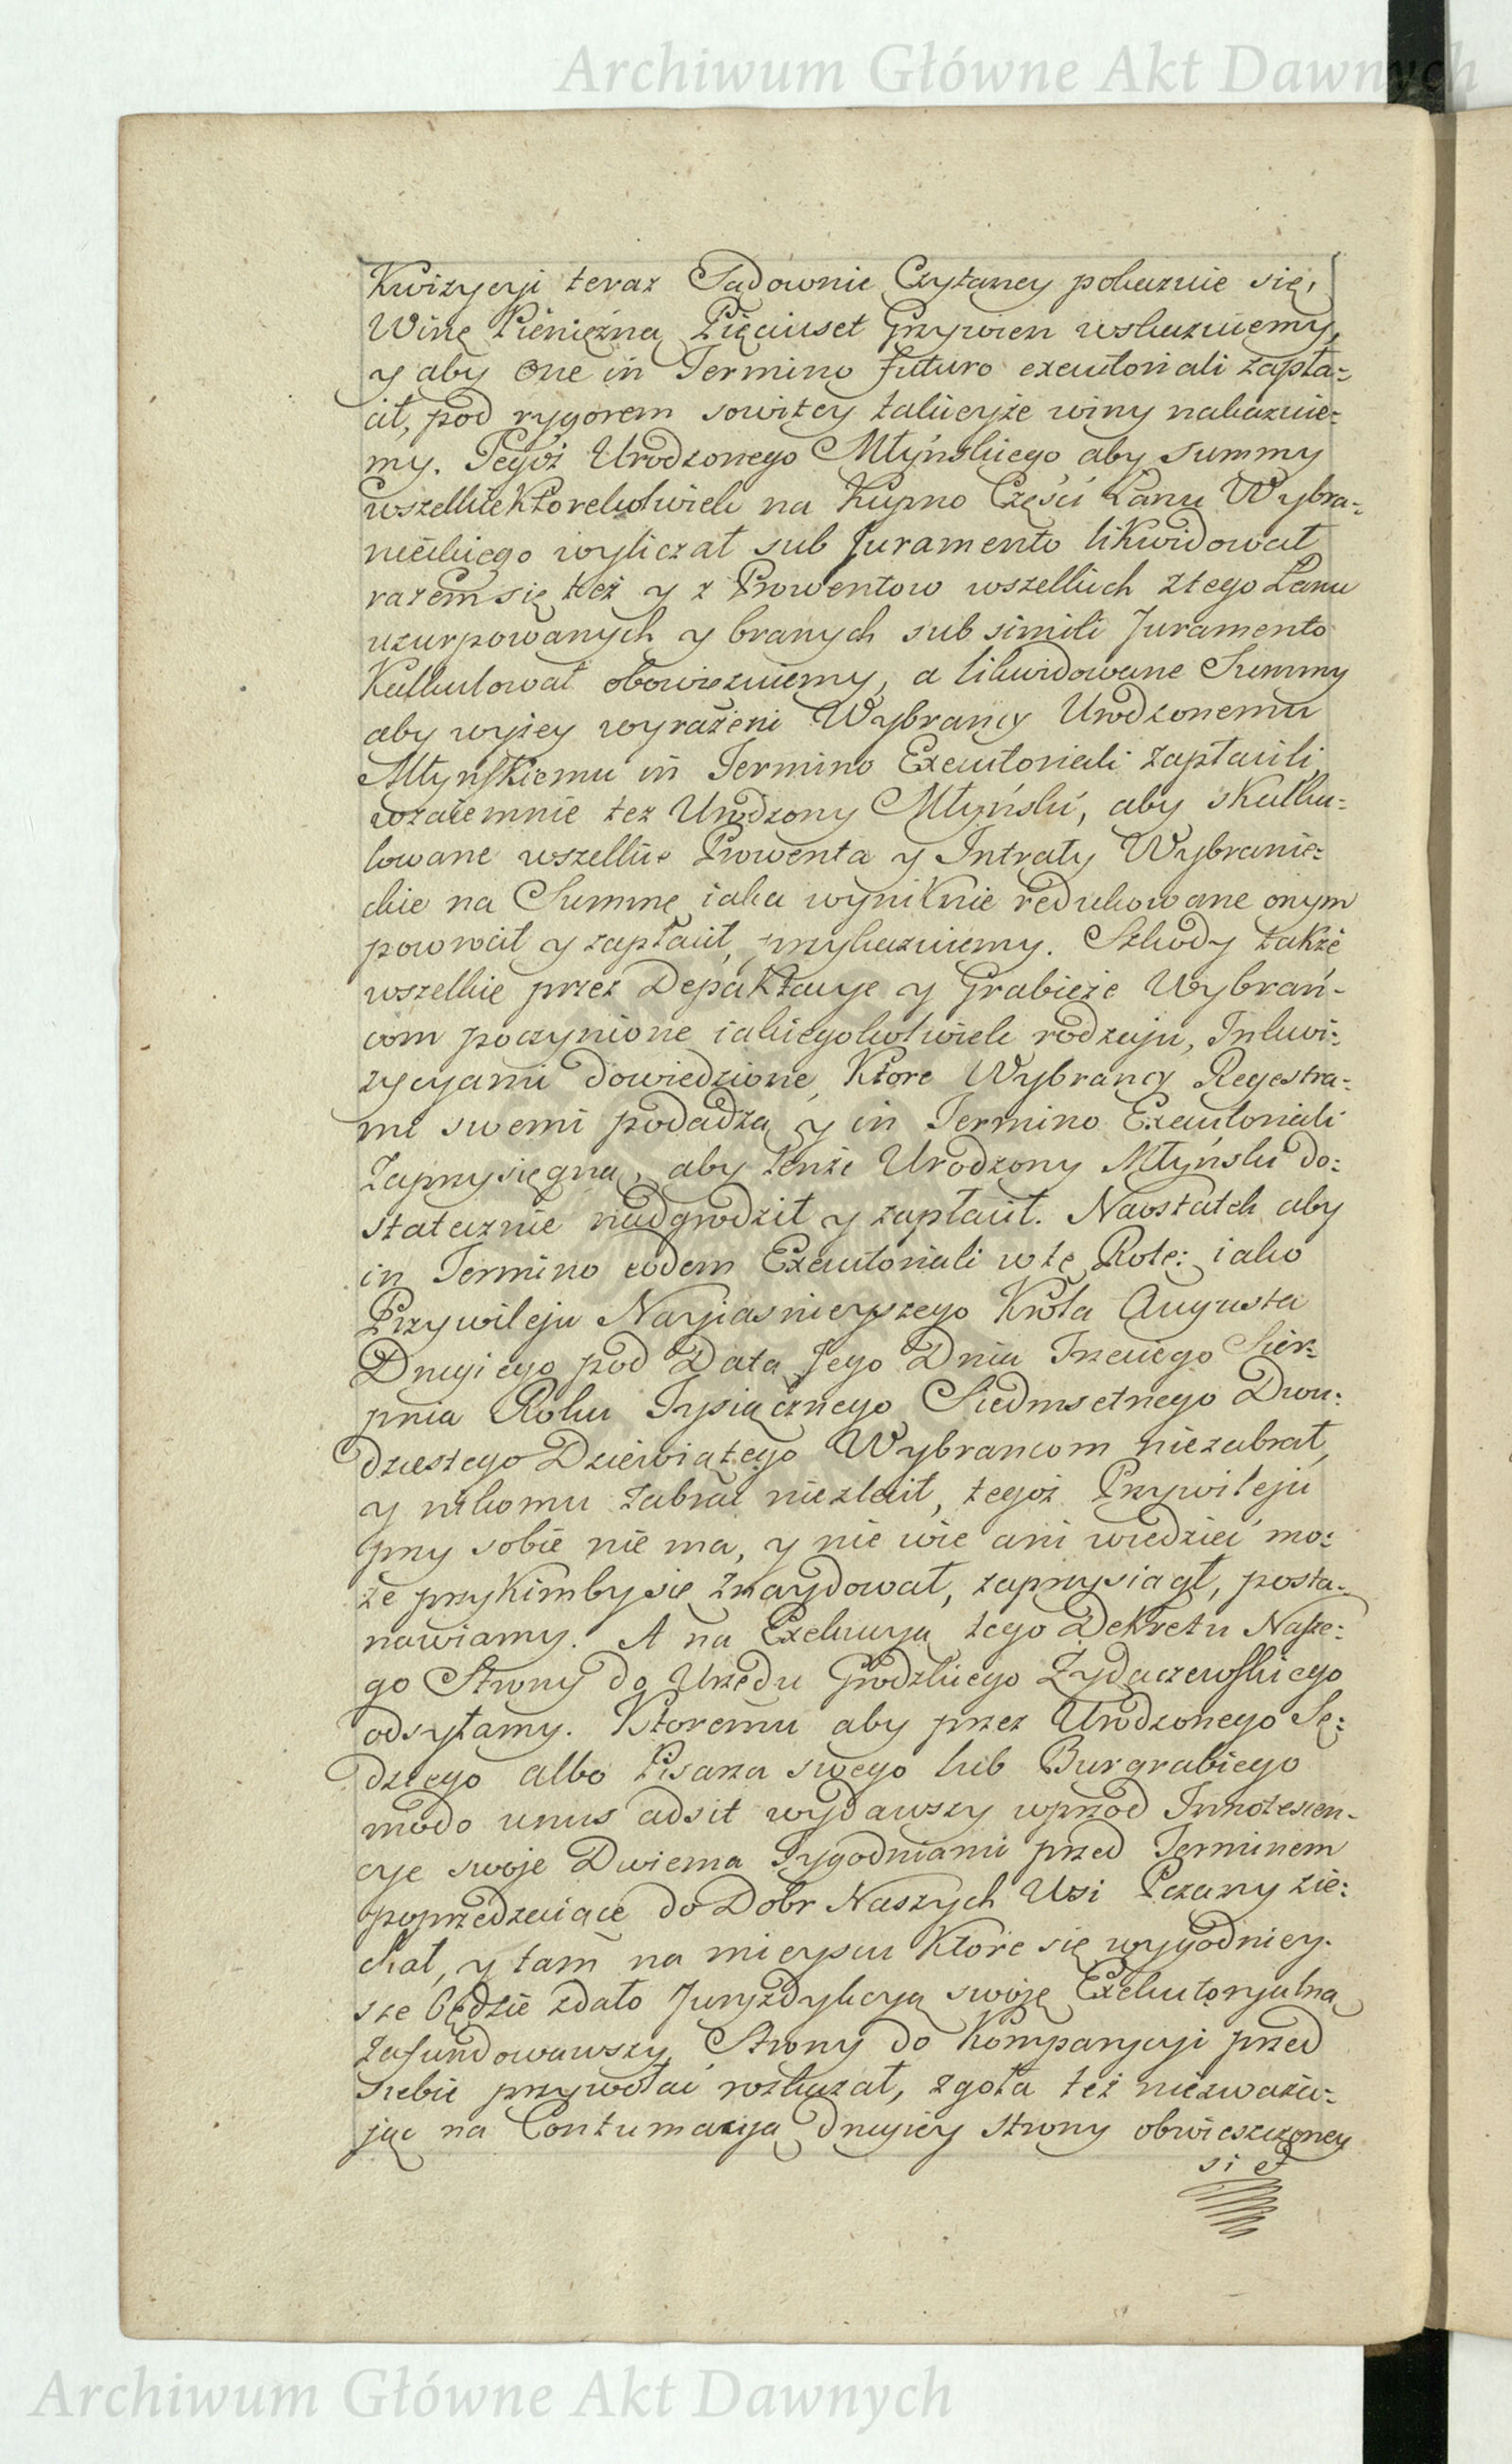 Archiwum Główne Akt Dawnych
Kwizycyi teraz Sądownie Czytaney pokazuie się,
Winę Pieniężną Pięciuset Grzywien wskazuiemy,
y aby One in Termino futuro executoriali zapła=
cił, pod rygorem sowitey takieyże winy nakazuie=
my. Tegoż Urodzonego Młyńskiego aby Summy
wszelkie Ktorekolwiek na Kupno Części Łanu Wybra=
nieckiego wyliczał sub Juramento likwidował
razem się też y z Prowentow wszelkich ztego Łanu
uzurpowanych y branych sub simili Juramento
Kalkulował obowiezuiemy, a likwidowane Summy
aby wyżey wyrażeni Wybrancy Urodzonemu
Młynskiemu in Termino Executoriali zapłacili,
wzaiemnie tez Urodzony Młyński, aby skalku=
lowane wszelkie Prowenta y Intraty Wybranie=
ckie na Summę iaka wyniknie redukowane onym
powrocił y zapłacił, przykazuiemy. Szkody także
wszelkie przez Depaktacye y Grabieże Wybrań-
com poczynione iakiegokolwiek rodzaju, Inkwi=
zycyami dowiedzione, Ktore Wybrancy Regestra=
mi swemi podadzą y in Termino Executoriali
Zaprzysięgną, aby tenże Urodzony Młyński do=
statecznie nadgrodził y zapłacił. Naostatek aby
in Termino eodem Executoriali w tę Rotę: iako
Przywileju Nayjasnieyszego Krola Augusta
Drugiego pod Datą Jego Dnia Trzeciego Sier=
pnia Roku Tysiącznego Siedmsetnego Dwu=
dziestego Dziewiątego Wybrancom niezabrał,
y nikomu zabrać niezlecił, tegoż Przywileju
przy sobie nie ma, y nie wie ani wiedzieć mo=
że przykimby się znaydował, zaprzysiągł, posta=
nawiamy. A na Exekucyą tego Dekretu Nasze=
go Strony do Urzędu Grodzkiego Żydaczewskiego
odsyłamy. Ktoremu aby przez Urodzonego Sę=
dziego albo Pisarza swego lub Burgrabiego
modo unus adsit wydawszy wprzod Innotescen-
cye swoje Dwiema Tygodniami przed Terminem
poprzedzaiące do Dobr Naszych Wsi Pczany zie=
chał, y tam na mieyscu Ktore się wygodniey-
sze będzie zdało Juryzdykcyą swoję Exekutoryalną
zafundowawszy, Strony do Komparycyi przed
siebie przywołać rozkazał, zgoła też niezważa=
jąc na Contumacyą drugiey Strony obwieszczoney
si et
Archiwum Główne Akt Dawnych